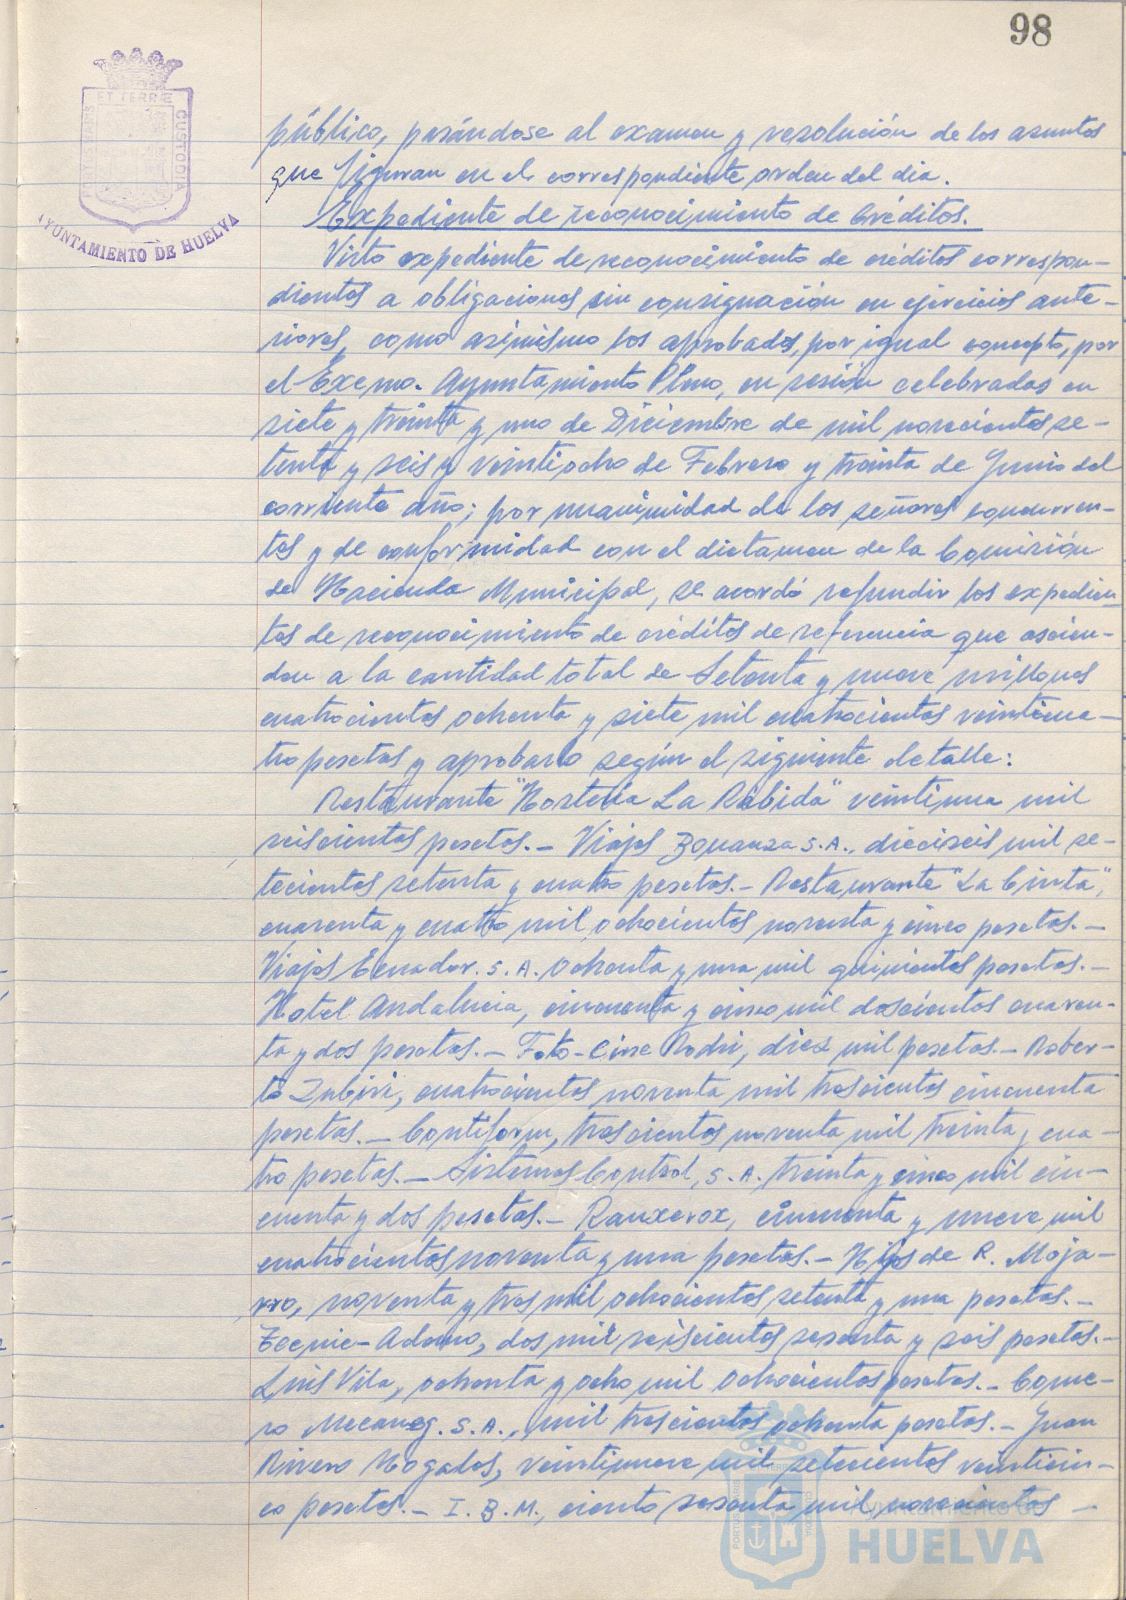 98
ET TERRÆ
CUSTODIA
PORTUS MARIS
AYUNTAMIENTO DE HUELVA
público, pasándose al examen y resolución de los asuntos
que figuran en el correspondiente orden del dia.
Expediente de reconocimiento de Créditos.
Visto expediente de reconocimiento de créditos correspon-
dientes a obligaciones sin consignación en ejercicios ante-
riores, como asimismo los aprobados, por igual concepto, por
el Excmo. Ayuntamiento Pleno, en sesión celebradas en
siete y treinta y uno de Diciembre de mil novecientos se-
tenta y seis y veintiocho de Febrero y treinta de Junio del
corriente año; por unanimidad de los señores concurren-
tes y de conformidad con el dictamen de la Comisión
de Hacienda Municipal, se acordó refundir los expedien-
tes de reconocimiento de créditos de referencia que ascien-
den a la cantidad total de Setenta y nueve millones
cuatrocientos ochenta y siete mil cuatrocientos veinticua-
tro pesetas y aprobarlo según el siguiente detalle:
Restaurante "Hosteria La Rábida" veintiuna mil
seiscientas pesetas.- Viajes Bonanza S.A., dieciseis mil se-
tecientas setenta y cuatro pesetas.- Restaurante "La Cinta",
cuarenta y cuatro mil ochocientos noventa y cinco pesetas.-
Viajes Ecuador. S.A. Ochenta y una mil quinientas pesetas.-
Hotel Andalucia, cincuenta y cinco mil doscientas cuaren-
ta y dos pesetas.- Foto-Cine Rodri, diez mil pesetas.- Rober-
to Zubiri, cuatrocientas noventa mil trescientas cincuenta
pesetas.- Contiform, trescientas noventa mil treinta y cua-
tro pesetas.- Sistemas Control, S.A. treinta y cinco mil cin-
cuenta y dos pesetas.- Ranxerox, cincuenta y nueve mil
cuatrocientas noventa y una pesetas.- Hijos de R. Moja-
rro, noventa y tres mil ochocientas setenta y una pesetas.-
Tecnic-Adano, dos mil seiscientas sesenta y seis pesetas.-
Luis Vila, ochenta y ocho mil Ochocientas pesetas.- Comer-
ro Mecanog. S.A., mil trescientas ochenta pesetas.- Juan
Rivero Nogales, veintinueve mil setecientas veinticin-
co pesetas.- I.B.M., ciento sesenta mil novecientas -
PORTUS MARIS
CUSTODIA
Ayuntamiento de
HUELVA